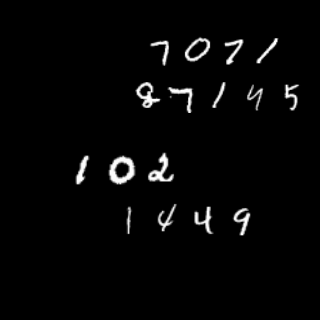 7071
87145
102
1449